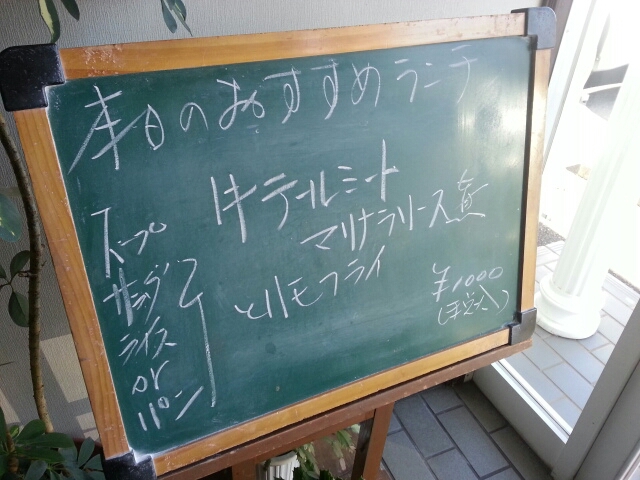 本日のおすすめランチ
牛テールミート
マリナラソース煮
とハモフライ
¥1000
(税込)
スープ
サラダ
ライス
or
パン